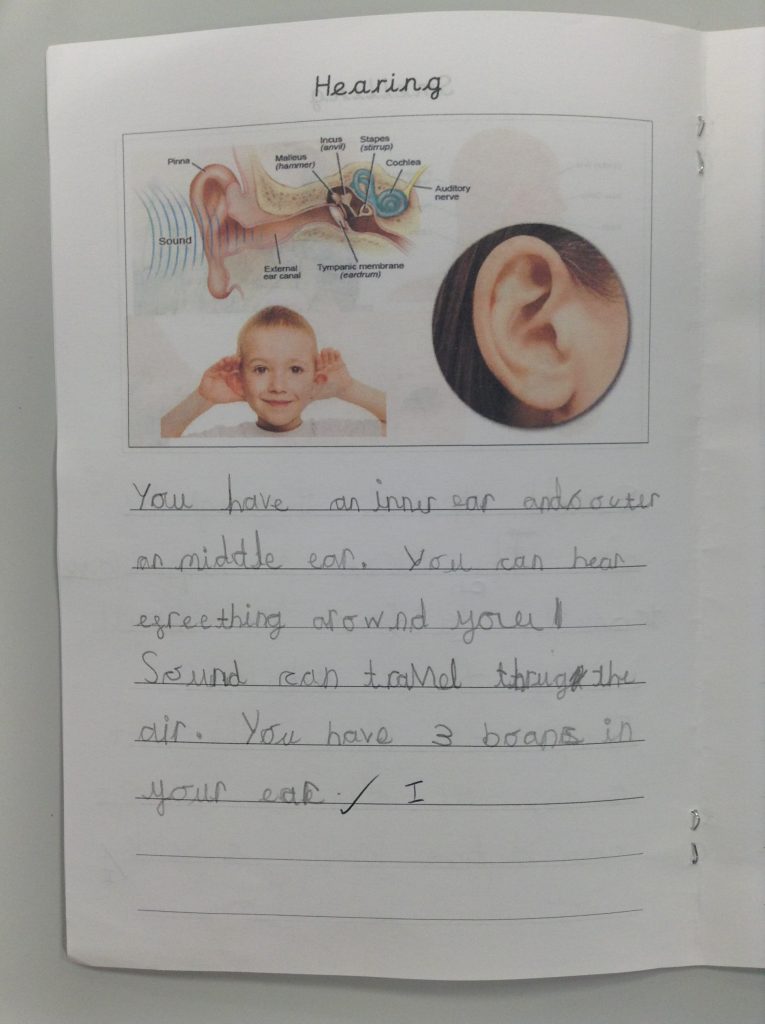 Hearing
Incus
(anvil)
Stapes
(stirrup)
Malleus
(hammer)
Pinna
Cochlea
Auditory
nerve
Sound
External
ear canal
Tympanic membrane
(eardrum)
You have an inner ear and outer
an middle ear. You can hear
egreething arownd you!
Sound can travel thrug the
air. You have 3 boans in
your ear. ✓ I